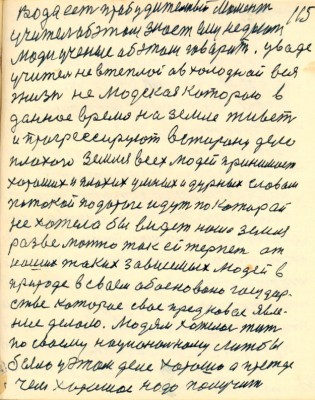 115
учител об этом знает ему не дают
Люди ученые об этом говорят. у ваде
учител не в теплой а в холодной вся
жизн не людская которою в
данное время на земле живет
и прогрессируют в сторону дело
плохого Земля всех людей принимает
хороших и плохих умных и дурных словам
по такой подороге идут по которай
не хотело бы видет наше земля
разве можно так ей терпет от
наших таких зависемых людей в
природе в своем обосновано государ-
стве которое свое предковае явле-
ние делало. Людям хотелос жит
по своему национальному лиш бы
было у этом деле хорошо а прежде
чем хорошое надо получит